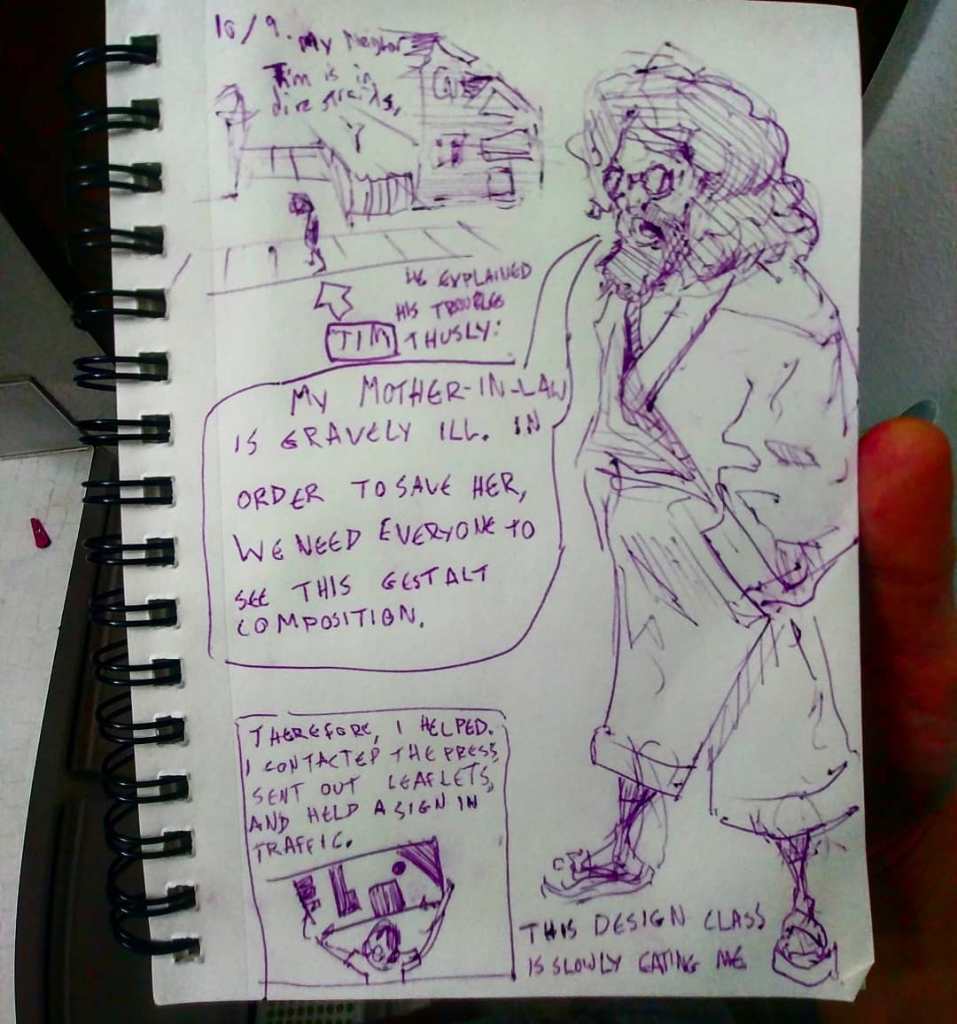 10/9. My Neighbor
Tim is in
dire straits,
HE EXPLAINED
HIS TROUBLES
THUSLY:
TIM
MY MOTHER-IN-LAW
IS GRAVELY ILL. IN
ORDER TO SAVE HER,
WE NEED EVERYONE TO
SEE THIS GESTALT
COMPOSITION.
THEREFORE, I HELPED.
I CONTACTED THE PRESS,
SENT OUT LEAFLETS,
AND HELD A SIGN IN
TRAFFIC.
THIS DESIGN CLASS
IS SLOWLY EATING ME